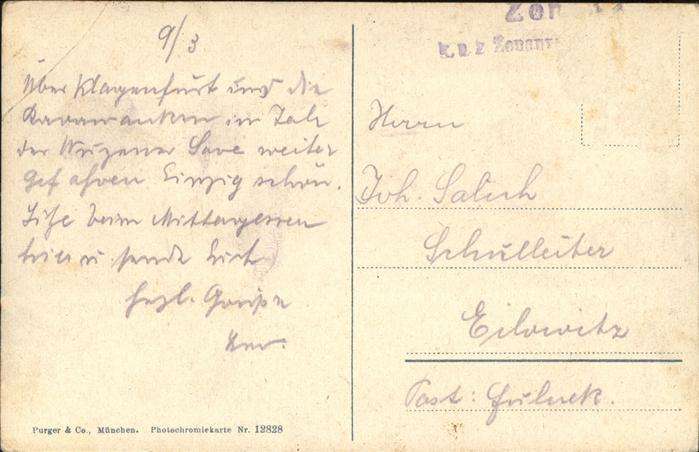 9/3
Über Klagenfurt und die
Karawanken im Tale
der Wurzener Save weiter
gefahren. Einzig schön.
Sitze beim Mittagessen
hier u sende Euch
herzl. Grüße
Zen
K. u. k. Zensur
Herrn
Joh. Salich
Schulleiter
Eilowitz
Post: Fulnek.
Purger & Co., München. Photochromiekarte Nr. 12828